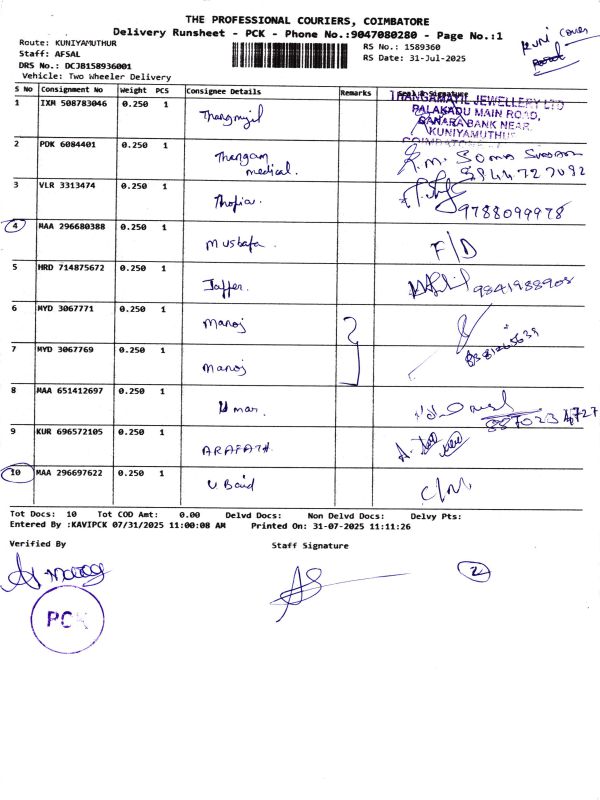 THE PROFESSIONAL COURIERS, COIMBATORE
Delivery Runsheet - PCK - Phone No.:9047080280 - Page No.:1
Route: KUNIYAMUTHUR
Staff: AFSAL
DRS No.: DCJB158936001
Vehicle: Two Wheeler Delivery
RS No.: 1589360
RS Date: 31-Jul-2025
KUNI Cover
S No Consignment No Weight PCS Consignee Details Remarks Seal & Signature
1 IXM 508783046 0.250 1 Thangmyil
THANGAMAYIL JEWELLERY LTD
PALAKADU MAIN ROAD,
CANARA BANK NEAR,
KUNIYAMUTHUR
2 PDK 6084401 0.250 1 Thangam medical.
3 VLR 3313474 0.250 1 Thofia. 9788099978
4 MAA 296680388 0.250 1 Mustafa F/D
5 HRD 714875672 0.250 1 Jaffer. 9841988908
6 MYD 3067771 0.250 1 Manoj
7 MYD 3067769 0.250 1 Manoj
8 MAA 651412697 0.250 1 Umar.
9 KUR 696572105 0.250 1 ARAFATH.
10 MAA 296697622 0.250 1 UBaid C/M
Tot Docs: 10 Tot COD Amt: 0.00 Delvd Docs: Non Delvd Docs: Delvy Pts:
Entered By :KAVIPCK 07/31/2025 11:00:08 AM Printed On: 31-07-2025 11:11:26
Verified By Staff Signature
2
PCK